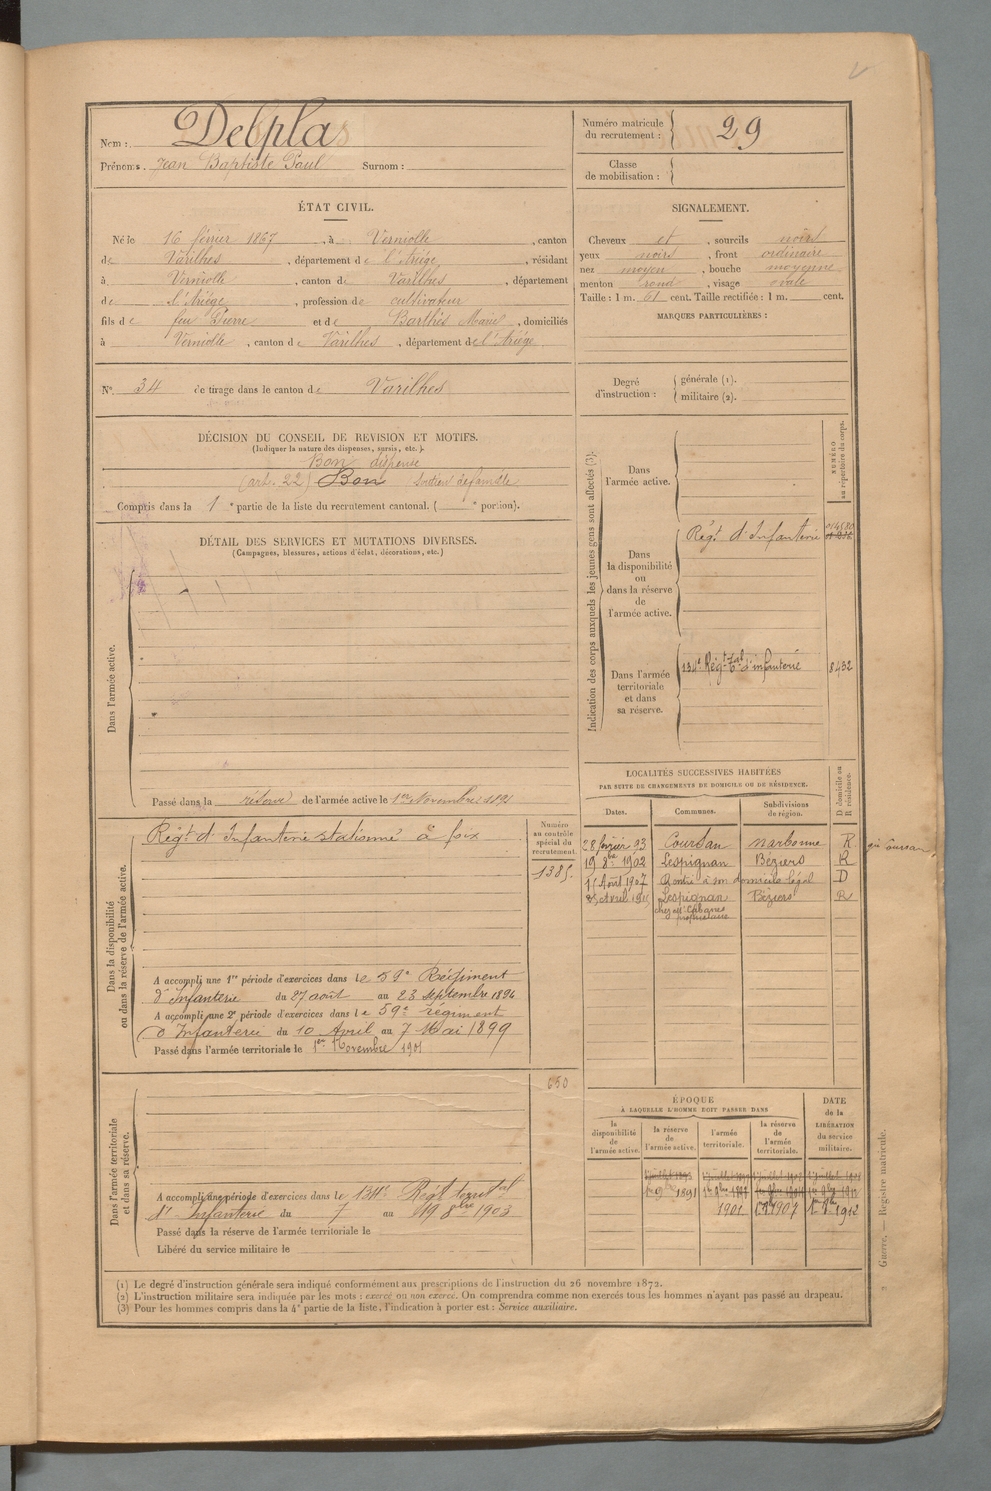 Nom : Delplas
Prénoms. Jean Baptiste Paul Surnom :
Numéro matricule du recrutement : 29
Classe de mobilisation :
ÉTAT CIVIL.
Né le 16 février 1867, à Verniolle, canton
de Varilhes, département de l'Ariège, résidant
à Verniolle, canton de Varilhes, département
de l'Ariège, profession de cultivateur
fils de feu Pierre et de Barthès Marie, domiciliés
à Verniolle, canton de Varilhes, département de l'Ariège.
SIGNALEMENT.
Cheveux et, sourcils noirs
yeux noirs, front ordinaire
nez moyen, bouche moyenne
menton rond, visage ovale
Taille : 1 m. 61 cent. Taille rectifiée : 1 m. cent.
MARQUES PARTICULIÈRES :
N° 34 de tirage dans le canton de Varilhes
Degré d'instruction : générale (1).
militaire (2).
DÉCISION DU CONSEIL DE REVISION ET MOTIFS.
(Indiquer la nature des dispenses, sursis, etc.).
Bon dispensé
(art. 22) Bon soutien de famille
Compris dans la 1e partie de la liste du recrutement cantonal. ( e portion).
DÉTAIL DES SERVICES ET MUTATIONS DIVERSES.
(Campagnes, blessures, actions d'éclat, décorations, etc.)
Dans l'armée active.
Passé dans la réserve de l'armée active le 1er Novembre 1891
Indication des corps auxquels les jeunes gens sont affectés (3).
NUMÉRO au répertoire du corps.
Dans l'armée active.
Dans la disponibilité ou dans la réserve de l'armée active.
Régt d'Infanterie
Dans l'armée territoriale et dans sa réserve.
134e Régt Tal d'infanterie 8432
LOCALITÉS SUCCESSIVES HABITÉES
PAR SUITE DE CHANGEMENTS DE DOMICILE OU DE RÉSIDENCE.
Dates. Communes. Subdivisions de région. D. domicile ou R. résidence.
28 février 93 Coursan Narbonne R.
19 8bre 1902 Lespignan Béziers R
15 Août 1907 Rentré à son domicile légal D
Avril Lespignan Béziers R
propriétaire
Dans la disponibilité ou dans la réserve de l'armée active.
Numéro au contrôle spécial du recrutement.
Régt d'Infanterie stationné à Foix
1385.
A accompli une 1re période d'exercices dans le 59e Régiment
d'Infanterie du 27 août au 23 Septembre 1894
A accompli une 2e période d'exercices dans le 59e régiment
d'Infanterie du 10 Avril au 7 Mai 1899
Passé dans l'armée territoriale le 1er Novembre 1901
Dans l'armée territoriale et dans sa réserve.
650
A accompli une période d'exercices dans le 134e Régt territal
d'Infanterie du 7 au 19 8bre 1903
Passé dans la réserve de l'armée territoriale le
Libéré du service militaire le
ÉPOQUE
À LAQUELLE L'HOMME DOIT PASSER DANS
DATE de la LIBÉRATION du service militaire.
la disponibilité de l'armée active.
la réserve de l'armée active.
l'armée territoriale.
la réserve de l'armée territoriale.
1er 9bre 1891
1901 1907 1912
(1) Le degré d'instruction générale sera indiqué conformément aux prescriptions de l'instruction du 26 novembre 1872.
(2) L'instruction militaire sera indiquée par les mots : exercé ou non exercé. On comprendra comme non exercés tous les hommes n'ayant pas passé au drapeau.
(3) Pour les hommes compris dans la 4e partie de la liste, l'indication à porter est : Service auxiliaire.
2 Guerre. — Registre matricule.